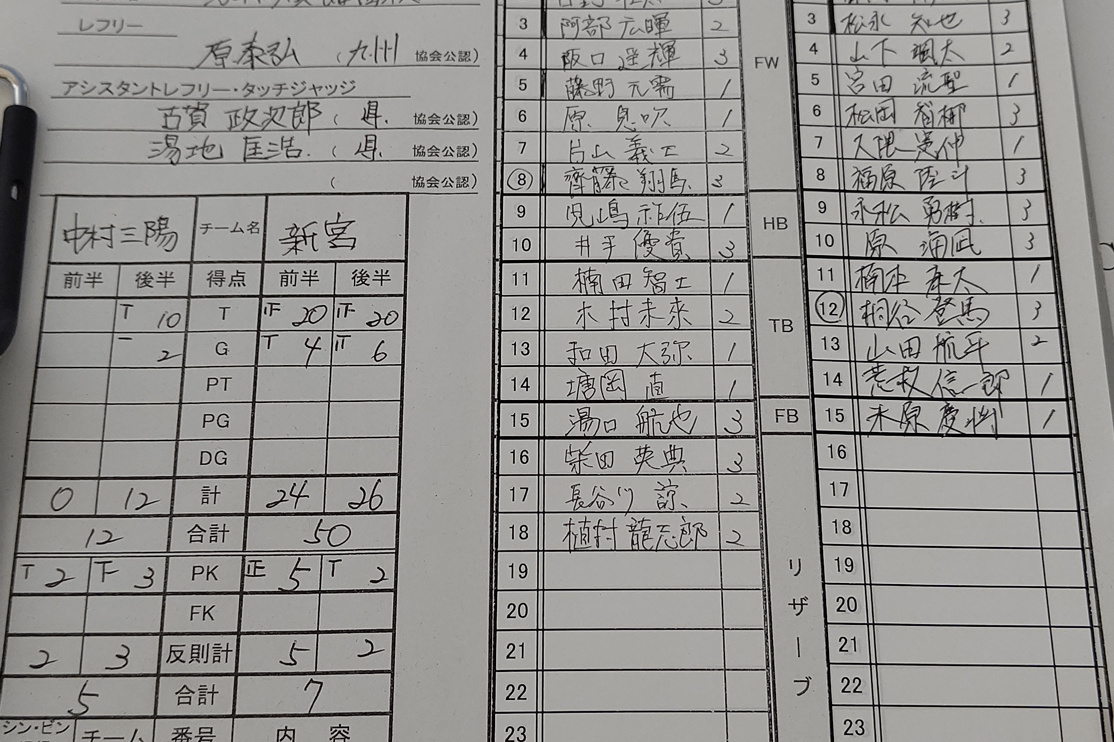 レフリー
原泰弘 (九州 協会公認)
アシスタントレフリー・タッチジャッジ
古賀 政次郎 ( 県 協会公認)
湯地 匡浩 ( 県 協会公認)
( 協会公認)
中村三陽 チーム名 新宮
前半 後半 得点 前半 後半
T 10 T 正 20 正 20
一 2 G T 4 下 6
PT
PG
DG
0 12 計 24 26
12 合計 50
T 2 下 3 PK 正 5 T 2
FK
2 3 反則計 5 2
5 合計 7
シン・ビン チーム 番号 内 容
3 阿部 広暉 2
4 阪口 遥輝 3
5 藤野 元 1
6 原 息吹 1
7 片山 義士 2
8 齊藤 翔馬 3
9 児嶋 祐伍 1
10 井手 優貴 3
11 楠田 智士 1
12 木村未来 2
13 和田 大弥 1
14 塘岡 直 1
15 湯口 航也 3
16 柴田 英典 3
17 長谷川 諒 2
18 植村 龍志郎 2
19
20
21
22
23
FW
HB
TB
FB
リザーブ
3 松永 知也 3
4 山下 颯太 2
5 宮田 流聖 1
6 松岡 3
7 大隈 憲伸 1
8 福原 陸斗 3
9 永松 勇樹 3
10 原 海凪 3
11 楠本 太 1
12 桐谷 登馬 3
13 山田 航平 2
14 荒牧 信一郎 1
15 木原 慶将 1
16
17
18
19
20
21
22
23